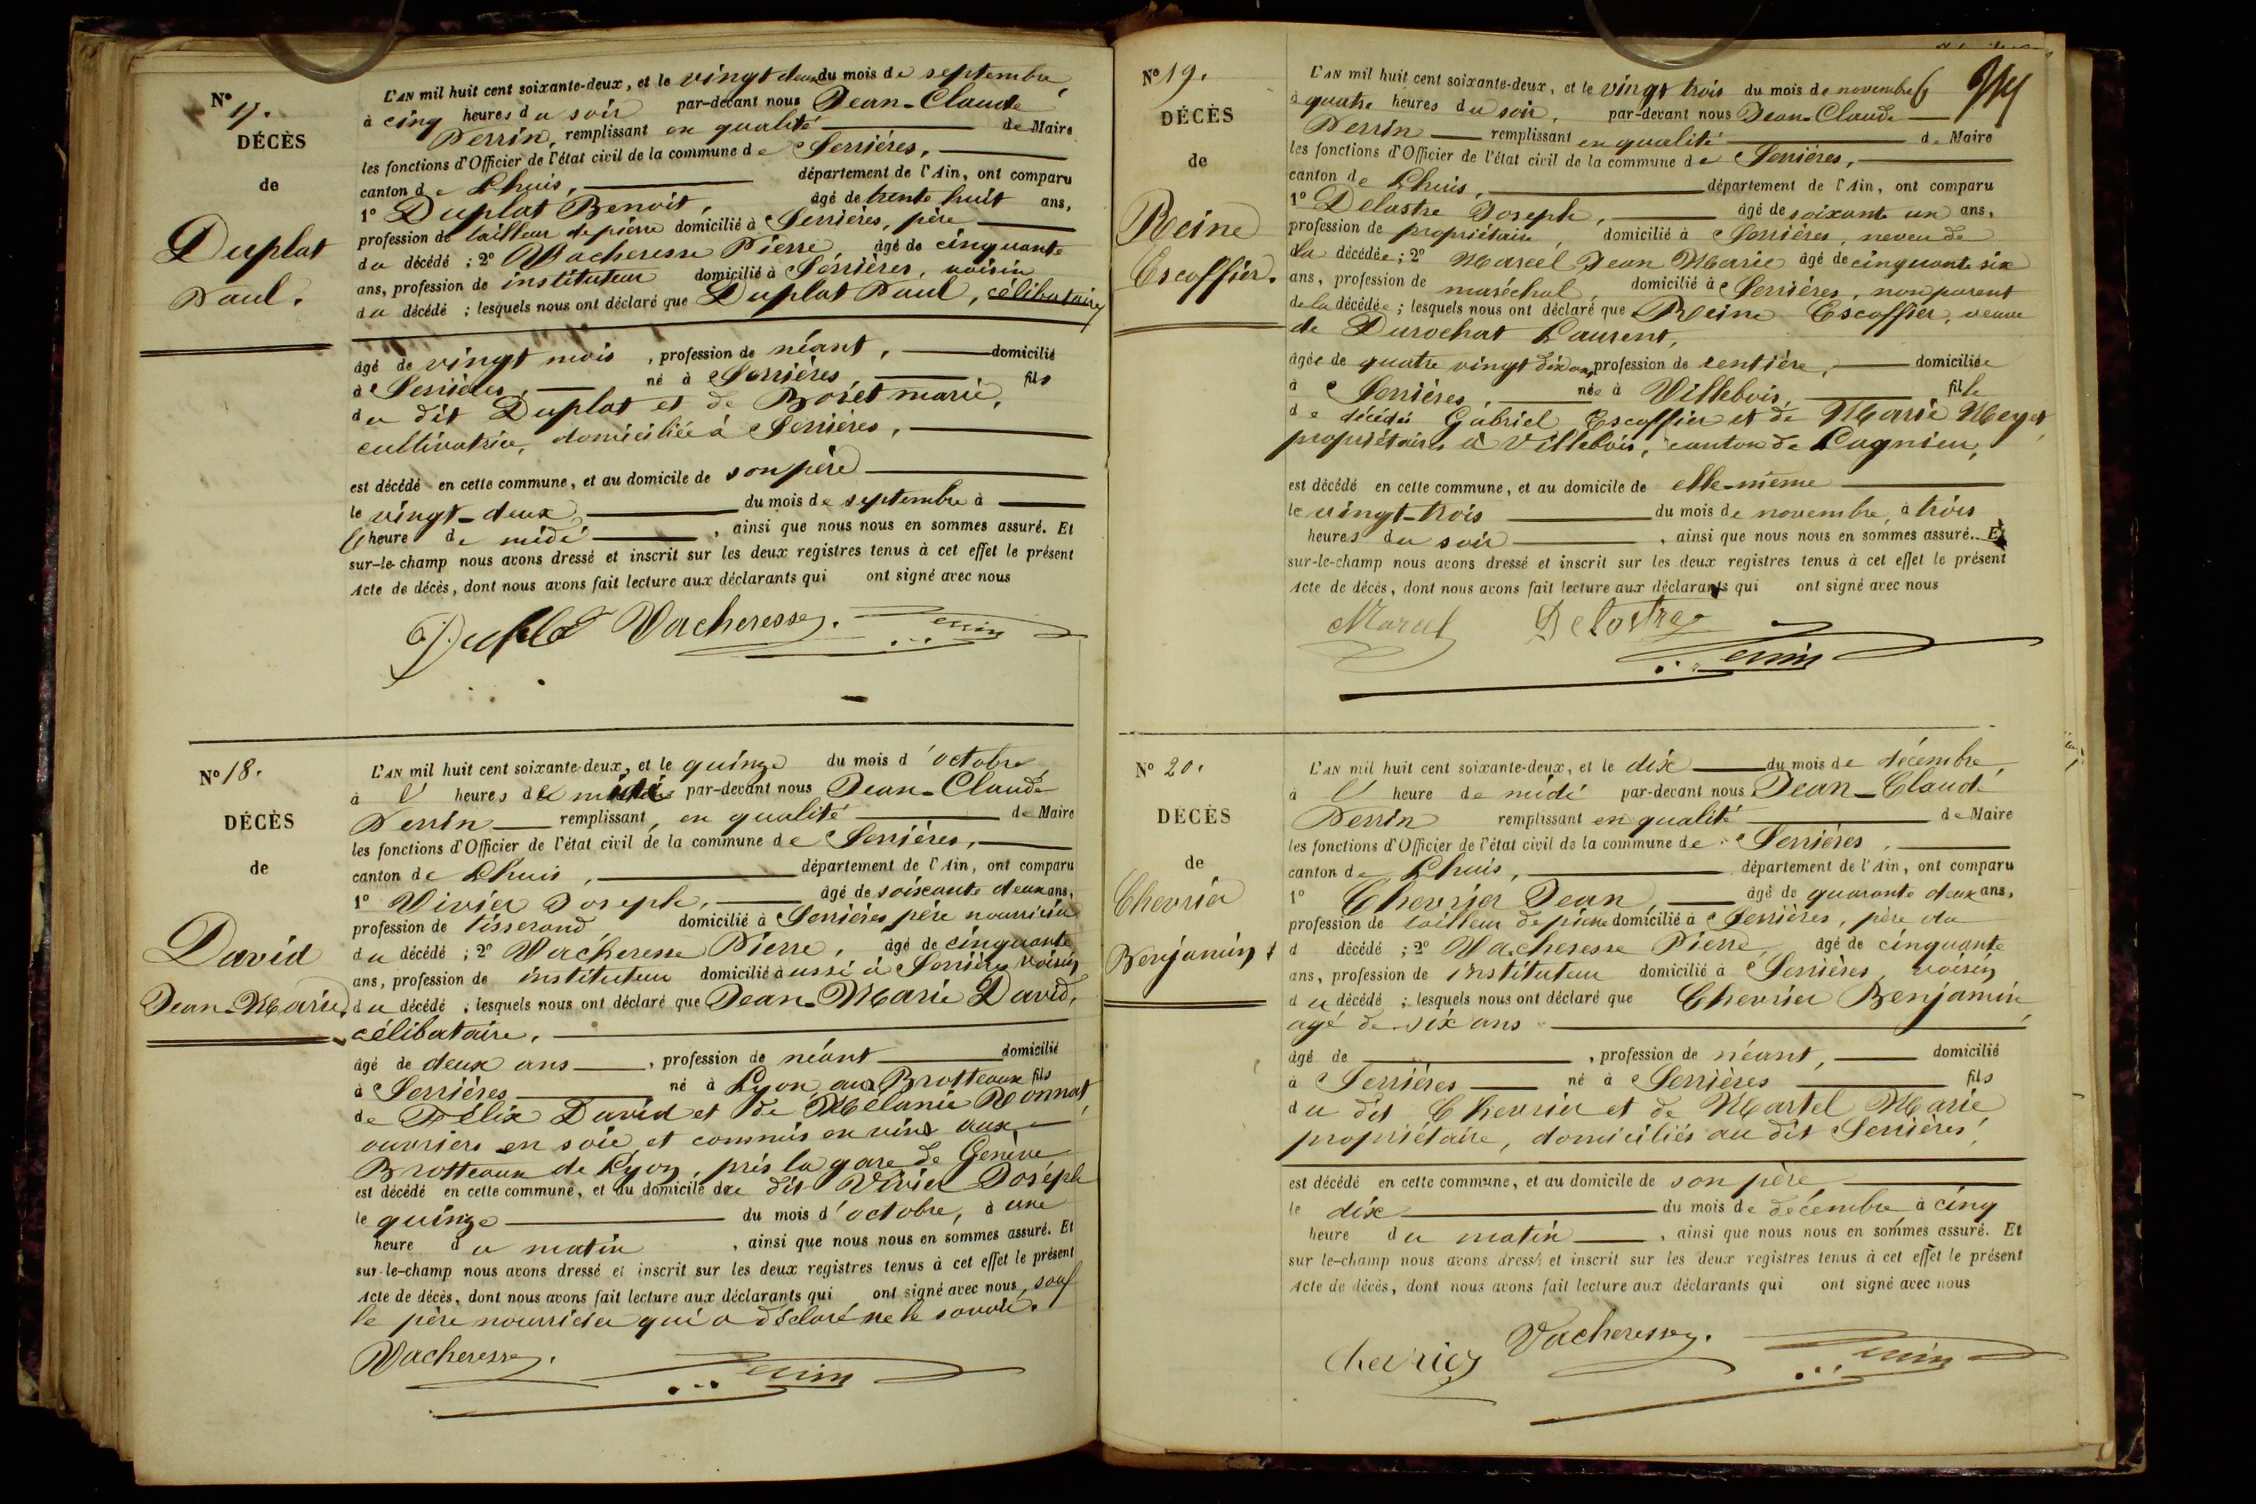 N° 17.
DÉCÈS
de
Duplat
Paul.
L'AN mil huit cent soixante-deux, et le vingt deux du mois de septembre,
à cinq heures du soir par-devant nous Jean-Claude
Perrin, remplissant en qualité de Maire
les fonctions d'Officier de l'état civil de la commune de Serrières,
canton de Lhuis, département de l'Ain, ont comparu
1° Duplat Benoit, âgé de trente huit ans,
profession de tailleur de pierre domicilié à Serrières, père
du décédé ; 2° Vacheresse Pierre, âgé de cinquante
ans, profession de instituteur domicilié à Serrières, voisin
du décédé ; lesquels nous ont déclaré que Duplat Paul, célibataire,
âgé de vingt mois, profession de néant, domicilié
à Serrières, né à Serrières fils
du dit Duplat et de Boret marie,
cultivatrice, domiciliée à Serrières,
est décédé en cette commune, et au domicile de son père
le vingt-deux du mois de septembre à
l'heure de midi, ainsi que nous nous en sommes assuré. Et
sur-le-champ nous avons dressé et inscrit sur les deux registres tenus à cet effet le présent
Acte de décès, dont nous avons fait lecture aux déclarants qui ont signé avec nous
Duplat Vacheresse. Perrin
N° 18.
DÉCÈS
de
David
Jean-Marie.
L'AN mil huit cent soixante-deux, et le quinze du mois d'octobre,
à l' heures de midi par-devant nous Jean-Claude
Perrin remplissant, en qualité de Maire
les fonctions d'Officier de l'état civil de la commune de Serrières,
canton de Lhuis, département de l'Ain, ont comparu
1° Vivier Joseph, âgé de soixante deux ans,
profession de tisserand domicilié à Serrières père nourricier
du décédé ; 2° Vacheresse Pierre, âgé de cinquante
ans, profession de instituteur domicilié aussi à Serrières voisin
du décédé ; lesquels nous ont déclaré que Jean-Marie David,
célibataire,
âgé de deux ans, profession de néant domicilié
à Serrières né à Lyon, aux Brotteaux fils
de Félix David et de Mélanie Ronnat,
ouvriers en soie et commis en vins aux
Brotteaux de Lyon, près la gare de Genève
est décédé en cette commune, et au domicile du dit Vivier Joseph
le quinze du mois d'octobre, à une
heure du matin, ainsi que nous nous en sommes assuré. Et
sur-le-champ nous avons dressé et inscrit sur les deux registres tenus à cet effet le présent
Acte de décès, dont nous avons fait lecture aux déclarants qui ont signé avec nous, sauf
le père nourricier qui a déclaré ne le savoir.
Vacheresse. Perrin
N° 19.
DÉCÈS
de
Reine
Escoffier.
L'AN mil huit cent soixante-deux, et le vingt trois du mois de novembre
à quatre heures du soir, par-devant nous Jean-Claude
Perrin remplissant en qualité de Maire
les fonctions d'Officier de l'état civil de la commune de Serrières,
canton de Lhuis, département de l'Ain, ont comparu
1° Delastre Joseph, âgé de soixante un ans,
profession de propriétaire, domicilié à Serrières, neveu de
la décédée ; 2° Marcel Jean Marie âgé de cinquante six
ans, profession de maréchal domicilié à Serrières, non parent
de la décédée ; lesquels nous ont déclaré que Reine Escoffier, veuve
de Durochat Laurent,
âgée de quatre vingt dix ans, profession de rentière, domiciliée
à Serrières, née à Villebois, fille
de décédés Gabriel Escoffier et de Marie Meyet,
propriétaires à Villebois, canton de Lagnieu,
est décédé en cette commune, et au domicile de elle-même
le vingt-trois du mois de novembre, à trois
heures du soir, ainsi que nous nous en sommes assuré. Et
sur-le-champ nous avons dressé et inscrit sur les deux registres tenus à cet effet le présent
Acte de décès, dont nous avons fait lecture aux déclarants qui ont signé avec nous
Marcel Delastre
Perrin
N° 20.
DÉCÈS
de
Chevrier
Benjamin
L'AN mil huit cent soixante-deux, et le dix du mois de décembre,
à l' heure de midi par-devant nous Jean-Claude
Perrin remplissant en qualité de Maire
les fonctions d'Officier de l'état civil de la commune de Serrières,
canton de Lhuis, département de l'Ain, ont comparu
1° Chevrier Jean, âgé de quarante deux ans,
profession de tailleur de pierre domicilié à Serrières, père du
d décédé ; 2° Vacheresse Pierre, âgé de cinquante
ans, profession de instituteur domicilié à Serrières, voisin
du décédé ; lesquels nous ont déclaré que Chevrier Benjamin,
agé de six ans
âgé de , profession de néant, domicilié
à Serrières né à Serrières fils
du dit Chevrier et de Martel Marie
propriétaire, domiciliés au dit Serrières,
est décédé en cette commune, et au domicile de son père
le dix du mois de décembre à cinq
heure du matin, ainsi que nous nous en sommes assuré. Et
sur-le-champ nous avons dressé et inscrit sur les deux registres tenus à cet effet le présent
Acte de décès, dont nous avons fait lecture aux déclarants qui ont signé avec nous
Chevrier Vacheresse. Perrin